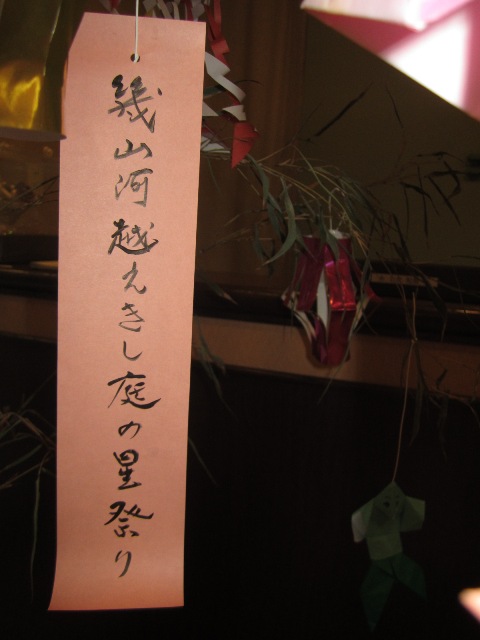 幾山河越えきし庭の星祭り